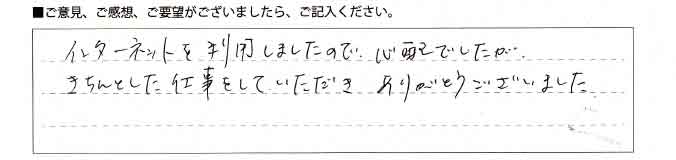 ■ご意見、ご感想、ご要望がございましたら、ご記入ください。
インターネットを利用しましたので、心配でしたが、
きちんとした仕事をしていただき ありがとうございました